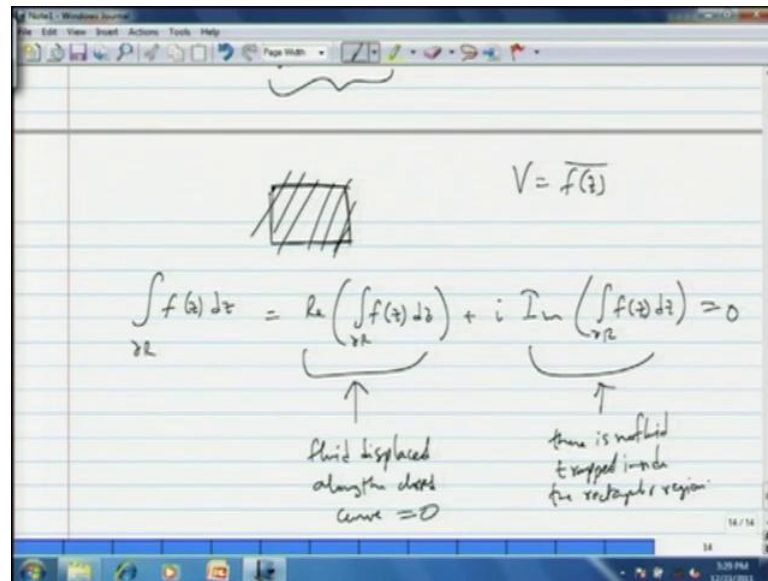 Note1 - Windows Journal
File Edit View Insert Actions Tools Help
Page Width
V = \overline{f(z)}
∫_{∂R} f(z) dz = Re(∫_{∂R} f(z) dz) + i Im(∫_{∂R} f(z) dz) = 0
fluid displaced
along the closed
curve = 0
there is no fluid
trapped inside
the rectangular region
14 / 14
14
5:29 PM
12/23/2011